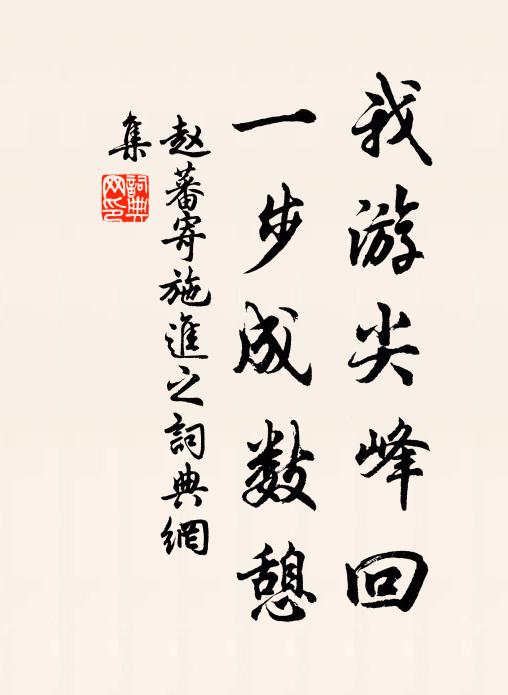 我游尖峰回
一步成数憩
赵蕃寄施進之詞典網
集
詞典
网印